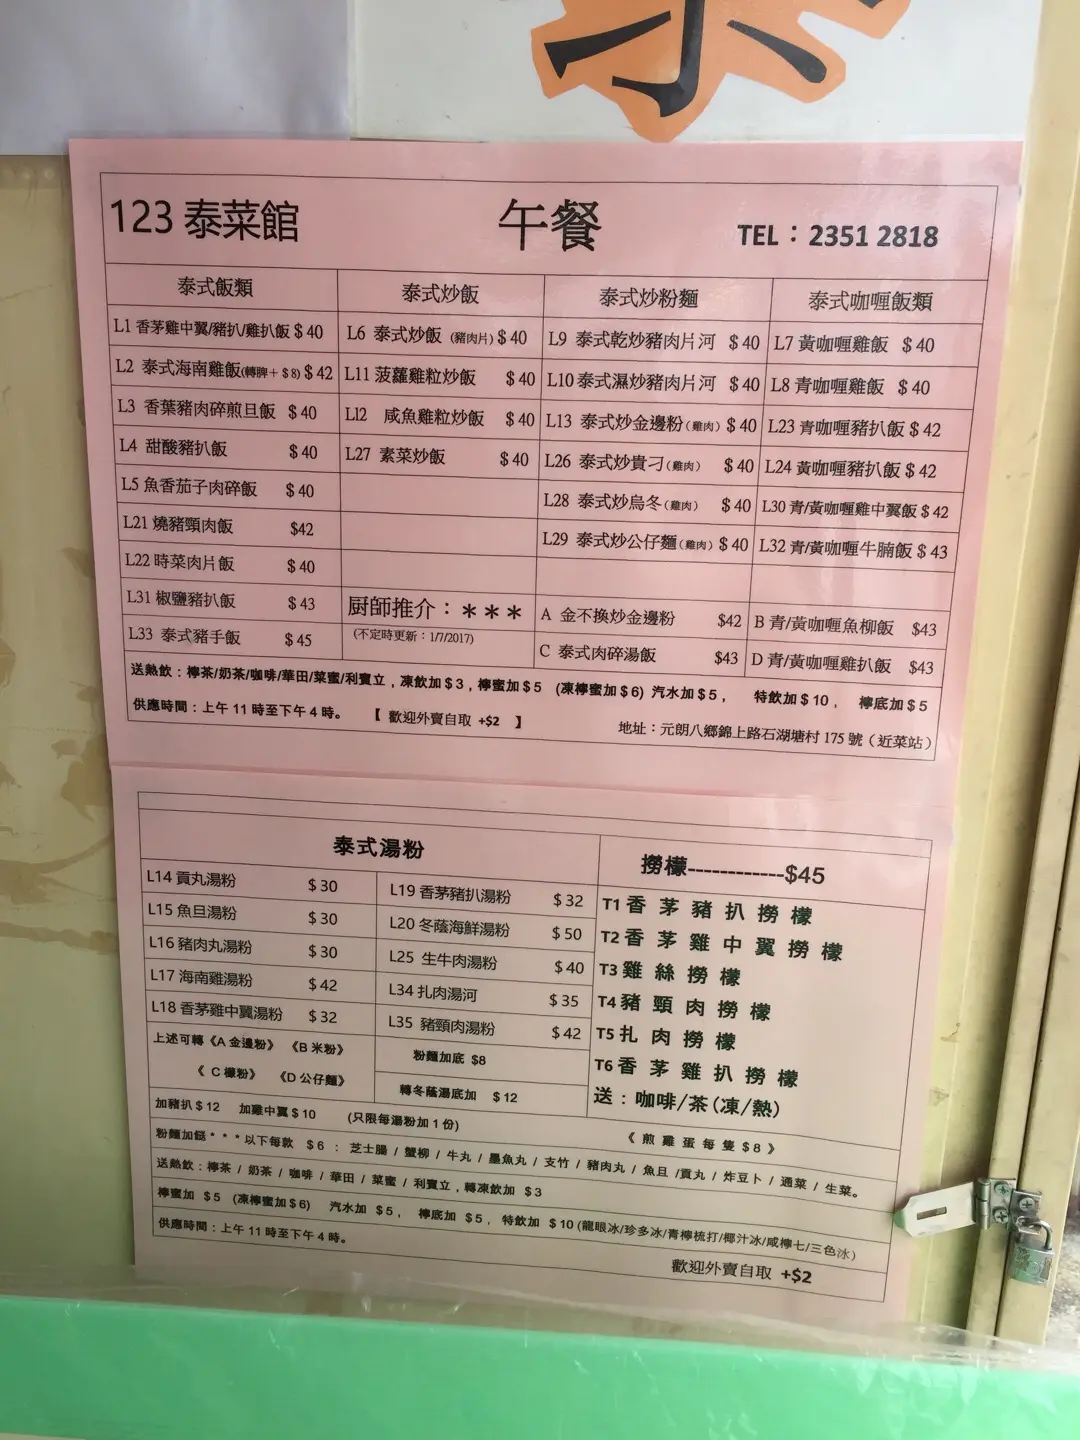 123 泰菜館 午餐 TEL：2351 2818
泰式飯類 泰式炒飯 泰式炒粉麵 泰式咖喱飯類
L1 香茅雞中翼/豬扒/雞扒飯 $ 40 L6 泰式炒飯 (豬肉片) $ 40 L9 泰式乾炒豬肉片河 $ 40 L7 黃咖喱雞飯 $ 40
L2 泰式海南雞飯(轉髀+ $ 8) $ 42 L11 菠蘿雞粒炒飯 $ 40 L10 泰式濕炒豬肉片河 $ 40 L8 青咖喱雞飯 $ 40
L3 香葉豬肉碎煎旦飯 $ 40 L12 咸魚雞粒炒飯 $ 40 L13 泰式炒金邊粉(雞肉) $ 40 L23 青咖喱豬扒飯 $ 42
L4 甜酸豬扒飯 $ 40 L27 素菜炒飯 $ 40 L26 泰式炒貴刁(雞肉) $ 40 L24 黃咖喱豬扒飯 $ 42
L5 魚香茄子肉碎飯 $ 40 L28 泰式炒烏冬(雞肉) $ 40 L30 青/黃咖喱雞中翼飯 $ 42
L21 燒豬頸肉飯 $42 L29 泰式炒公仔麵(雞肉) $ 40 L32 青/黃咖喱牛腩飯 $ 43
L22 時菜肉片飯 $ 40
L31 椒鹽豬扒飯 $ 43 厨師推介：＊＊＊ A 金不換炒金邊粉 $42 B 青/黃咖喱魚柳飯 $43
L33 泰式豬手飯 $ 45 (不定時更新：1/7/2017) C 泰式肉碎湯飯 $43 D 青/黃咖喱雞扒飯 $43
送熱飲：檸茶/奶茶/咖啡/華田/菜蜜/利賓立，凍飲加 $ 3，檸蜜加 $ 5 (凍檸蜜加 $ 6) 汽水加 $ 5， 特飲加 $ 10， 檸底加 $ 5
供應時間：上午 11 時至下午 4 時。 【 歡迎外賣自取 +$2 】 地址：元朗八鄉錦上路石湖塘村 175 號（近菜站）
泰式湯粉 撈檬------------$45
L14 貢丸湯粉 $ 30 L19 香茅豬扒湯粉 $ 32 T1 香茅豬扒撈檬
L15 魚旦湯粉 $ 30 L20 冬蔭海鮮湯粉 $ 50 T2 香茅雞中翼撈檬
L16 豬肉丸湯粉 $ 30 L25 生牛肉湯粉 $ 40 T3 雞絲撈檬
L17 海南雞湯粉 $ 42 L34 扎肉湯河 $ 35 T4 豬頸肉撈檬
L18 香茅雞中翼湯粉 $ 32 L35 豬頸肉湯粉 $ 42 T5 扎肉撈檬
上述可轉《A 金邊粉》 《B 米粉》 粉麵加底 $8 T6 香茅雞扒撈檬
《 C 檬粉》 《D 公仔麵》 轉冬蔭湯底加 $ 12 送：咖啡/茶(凍/熱)
加豬扒 $ 12 加雞中翼 $ 10 (只限每湯粉加 1 份) 《 煎雞蛋每隻 $ 8 》
粉麵加餸＊＊＊以下每款 $ 6 ：芝士腸 / 蟹柳 / 牛丸 / 墨魚丸 / 支竹 / 豬肉丸 / 魚旦 / 貢丸 / 炸豆卜 / 通菜 / 生菜。
送熱飲：檸茶 / 奶茶 / 咖啡 / 華田 / 菜蜜 / 利賓立，轉凍飲加 $ 3
檸蜜加 $ 5 (凍檸蜜加 $ 6) 汽水加 $ 5， 檸底加 $ 5，特飲加 $ 10 (龍眼冰/珍多冰/青檸梳打/椰汁冰/咸檸七/三色冰)
供應時間：上午 11 時至下午 4 時。
歡迎外賣自取 +$2